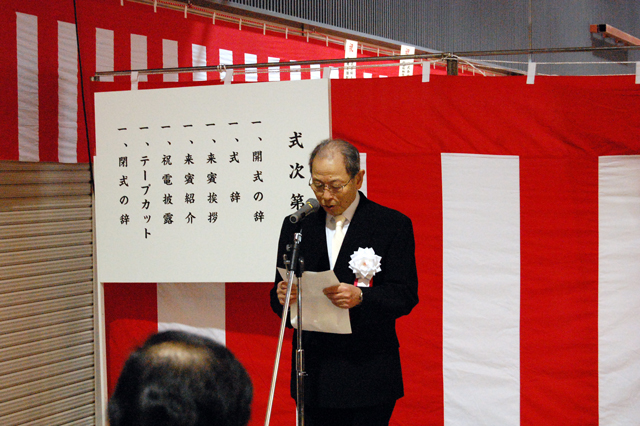 式次第
一、開式の辞
一、式 辞
一、来賓挨拶
一、来賓紹介
一、祝電披露
一、テープカット
一、閉式の辞